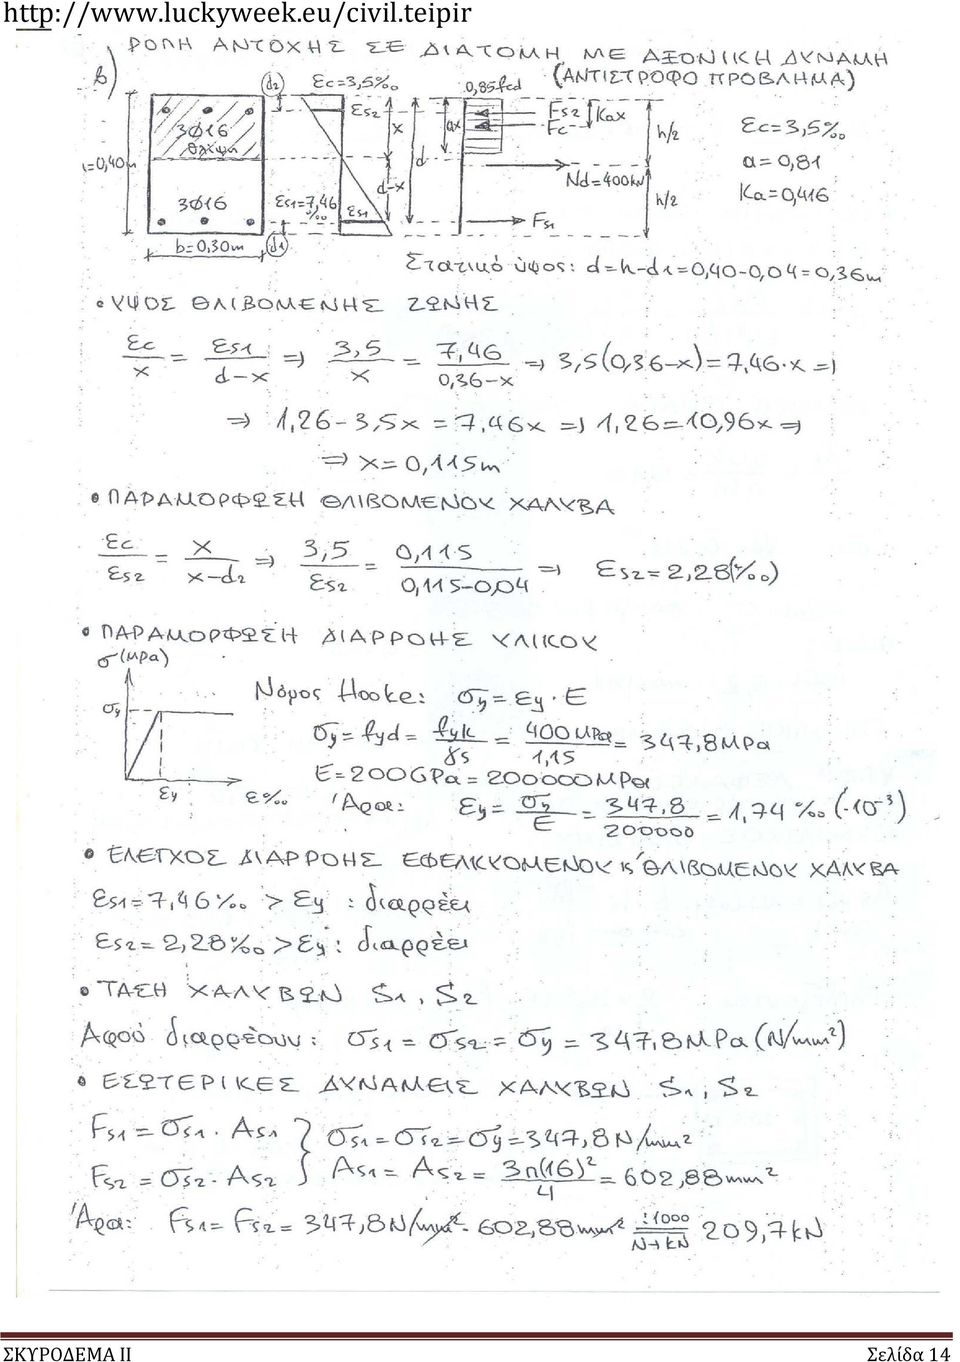 http://www.luckyweek.eu/civil.teipir
ΡΟΠΗ ΑΝΤΟΧΗΣ ΣΕ ΔΙΑΤΟΜΗ ΜΕ ΑΞΟΝΙΚΗ ΔΥΝΑΜΗ
(ΑΝΤΙΣΤΡΟΦΟ ΠΡΟΒΛΗΜΑ)
b)
d2 εc=3,5‰ 0,85fcd
εs2 x ax Fs2 Fc Kax h/2 εc=3,5‰
3Φ16
θλίψη
=0,40m d d-x Nd=400kN α=0,81
3Φ16 εs1=7,46‰ εs1 Fs1 h/2 Ka=0,416
b=0,30m d1
Στατικό ύψος: d=h-d1=0,40-0,04=0,36m
• ΥΨΟΣ ΘΛΙΒΟΜΕΝΗΣ ΖΩΝΗΣ
εc/x = εs1/(d-x) => 3,5/x = 7,46/(0,36-x) => 3,5(0,36-x)=7,46·x =>
=> 1,26-3,5x=7,46x => 1,26=10,96x =>
=> x=0,115m
• ΠΑΡΑΜΟΡΦΩΣΗ ΘΛΙΒΟΜΕΝΟΥ ΧΑΛΥΒΑ
εc/εs2 = x/(x-d2) => 3,5/εs2 = 0,115/(0,115-0,04) => εs2=2,28(‰)
• ΠΑΡΑΜΟΡΦΩΣΗ ΔΙΑΡΡΟΗΣ ΥΛΙΚΟΥ
σ(MPa)
σy Νόμος Hooke: σy=εy·E
σy=fyd=fyk/γs=400MPa/1,15=347,8MPa
E=200GPa=200000MPa
εy ε‰ Άρα: εy=σy/E=347,8/200000=1,74‰(·10⁻³)
• ΕΛΕΓΧΟΣ ΔΙΑΡΡΟΗΣ ΕΦΕΛΚΥΟΜΕΝΟΥ κ' ΘΛΙΒΟΜΕΝΟΥ ΧΑΛΥΒΑ
εs1=7,46‰ > εy : διαρρέει
εs2=2,28‰ > εy : διαρρέει
• ΤΑΣΗ ΧΑΛΥΒΩΝ S1, S2
Αφού διαρρέουν: σs1=σs2=σy=347,8MPa(N/mm²)
• ΕΣΩΤΕΡΙΚΕΣ ΔΥΝΑΜΕΙΣ ΧΑΛΥΒΩΝ S1, S2
Fs1=σs1·As1 } σs1=σs2=σy=347,8N/mm²
Fs2=σs2·As2 } As1=As2=3π(16)²/4=602,88mm²
Άρα: Fs1=Fs2=347,8N/mm²·602,88mm² =(:1000 N→kN) 209,7kN
ΣΚΥΡΟΔΕΜΑ ΙΙ Σελίδα 14